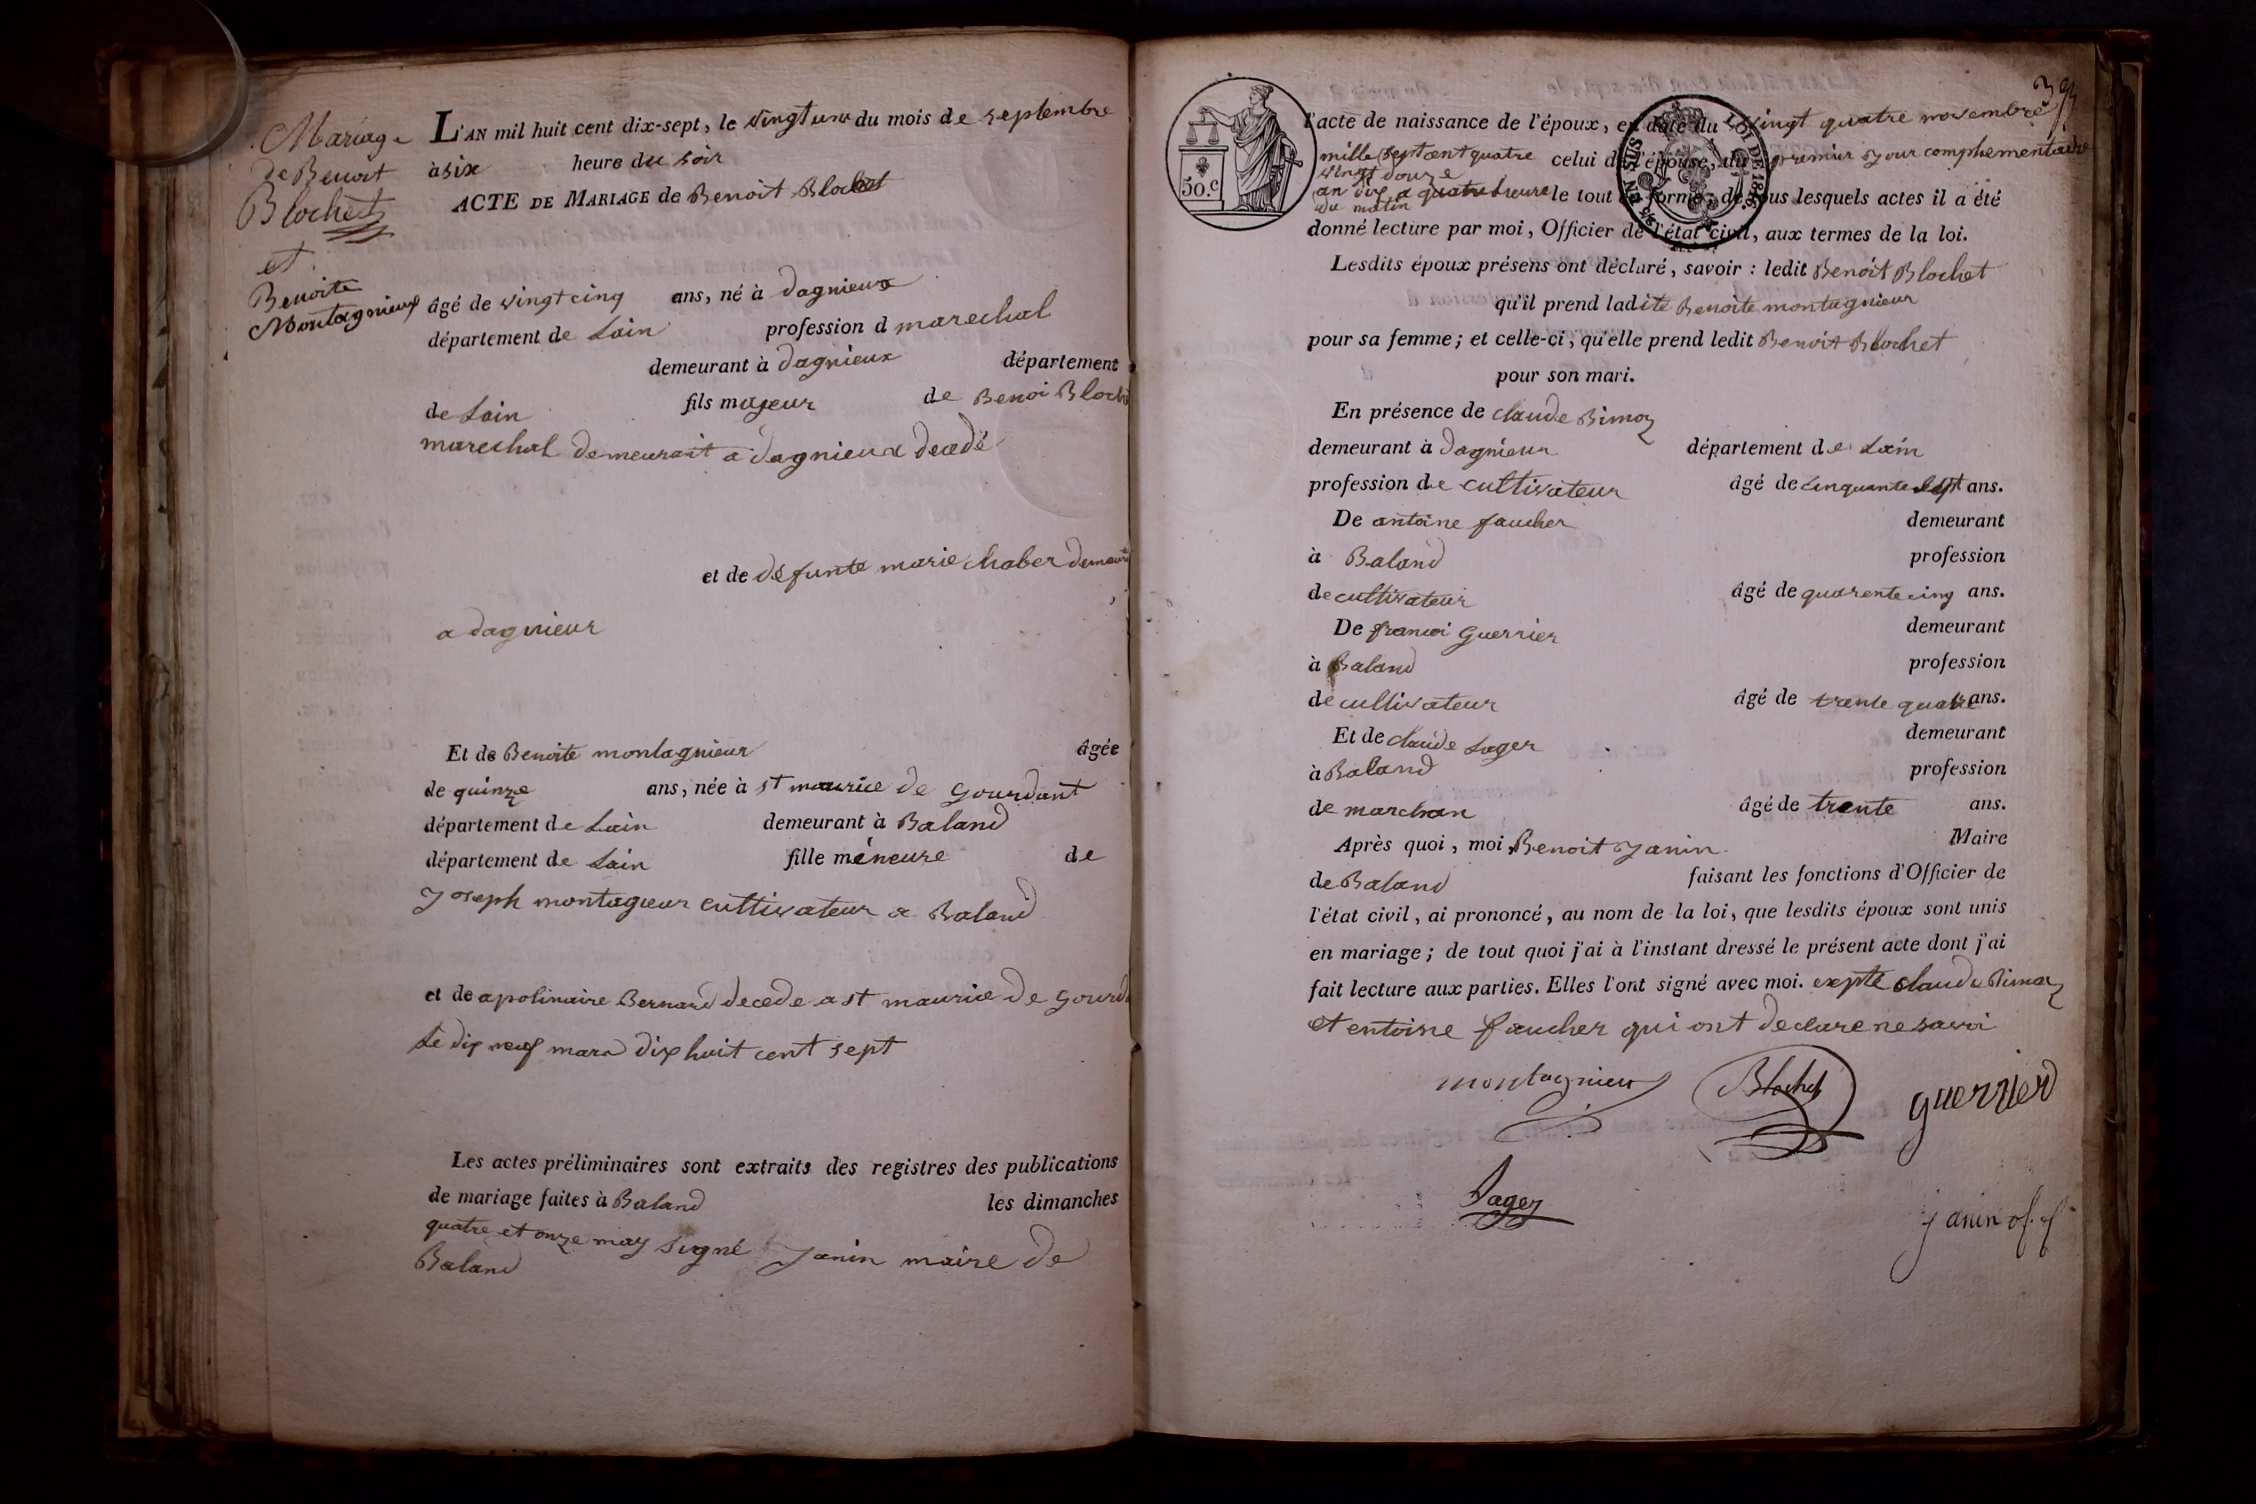 Mariage
de Benoit
Blochet
et
Benoite
Montagnieux
L'AN mil huit cent dix-sept, le vingt une du mois de septembre
à six heure du soir
ACTE DE MARIAGE de Benoit Blochet
âgé de vingt cinq ans, né à dagnieux
département de Lain profession d marechal
demeurant à dagnieux département
de Lain fils majeur de Benoi Bloche
marechal demeurait a dagnieux decedé
et de défunte marie chaber demeurt
a dagnieux
Et de Benoite montagnieur âgée
de quinze ans, née à st maurice de gourdant
département de Lain demeurant à Baland
département de Lain fille méneure de
Joseph montagieur cultivateur a Baland
et de apolinaire Bernard decede a st maurice de Gourd
Le dix neuf mars dix huit cent sept
Les actes préliminaires sont extraits des registres des publications
de mariage faites à Baland les dimanches
quatre et onze may signé Janin maire de
Baland
50.c
LOI DE 1816
l'acte de naissance de l'époux, en date du vingt quatre novembre
mille sept cent quatre vingt douze celui de l'épouse, du premier jour complementaire
an dix a quatre heure du matin le tout en forme; de tous lesquels actes il a été
donné lecture par moi, Officier de l'état civil, aux termes de la loi.
Lesdits époux présens ont déclaré, savoir : ledit Benoit Blochet
qu'il prend ladite Benoite montagnieur
pour sa femme; et celle-ci, qu'elle prend ledit Benoit Blochet
pour son mari.
En présence de claude Bimoz
demeurant à dagnieux département de Lain
profession de cultivateur âgé de cinquante sept ans.
De antoine faucher demeurant
à Baland profession
de cultivateur âgé de quarente cinq ans.
De francoi Guerrier demeurant
à Baland profession
de cultivateur âgé de trente quatre ans.
Et de claude Lager demeurant
à Baland profession
de marchan âgé de trente ans.
Après quoi, moi Benoit Janin Maire
de Baland faisant les fonctions d'Officier de
l'état civil, ai prononcé, au nom de la loi, que lesdits époux sont unis
en mariage; de tout quoi j'ai à l'instant dressé le présent acte dont j'ai
fait lecture aux parties. Elles l'ont signé avec moi. expte claude Bimoz
et entoine faucher qui ont declare ne savoi
montagnieux Blochet guerrier
Lager janin of. cf